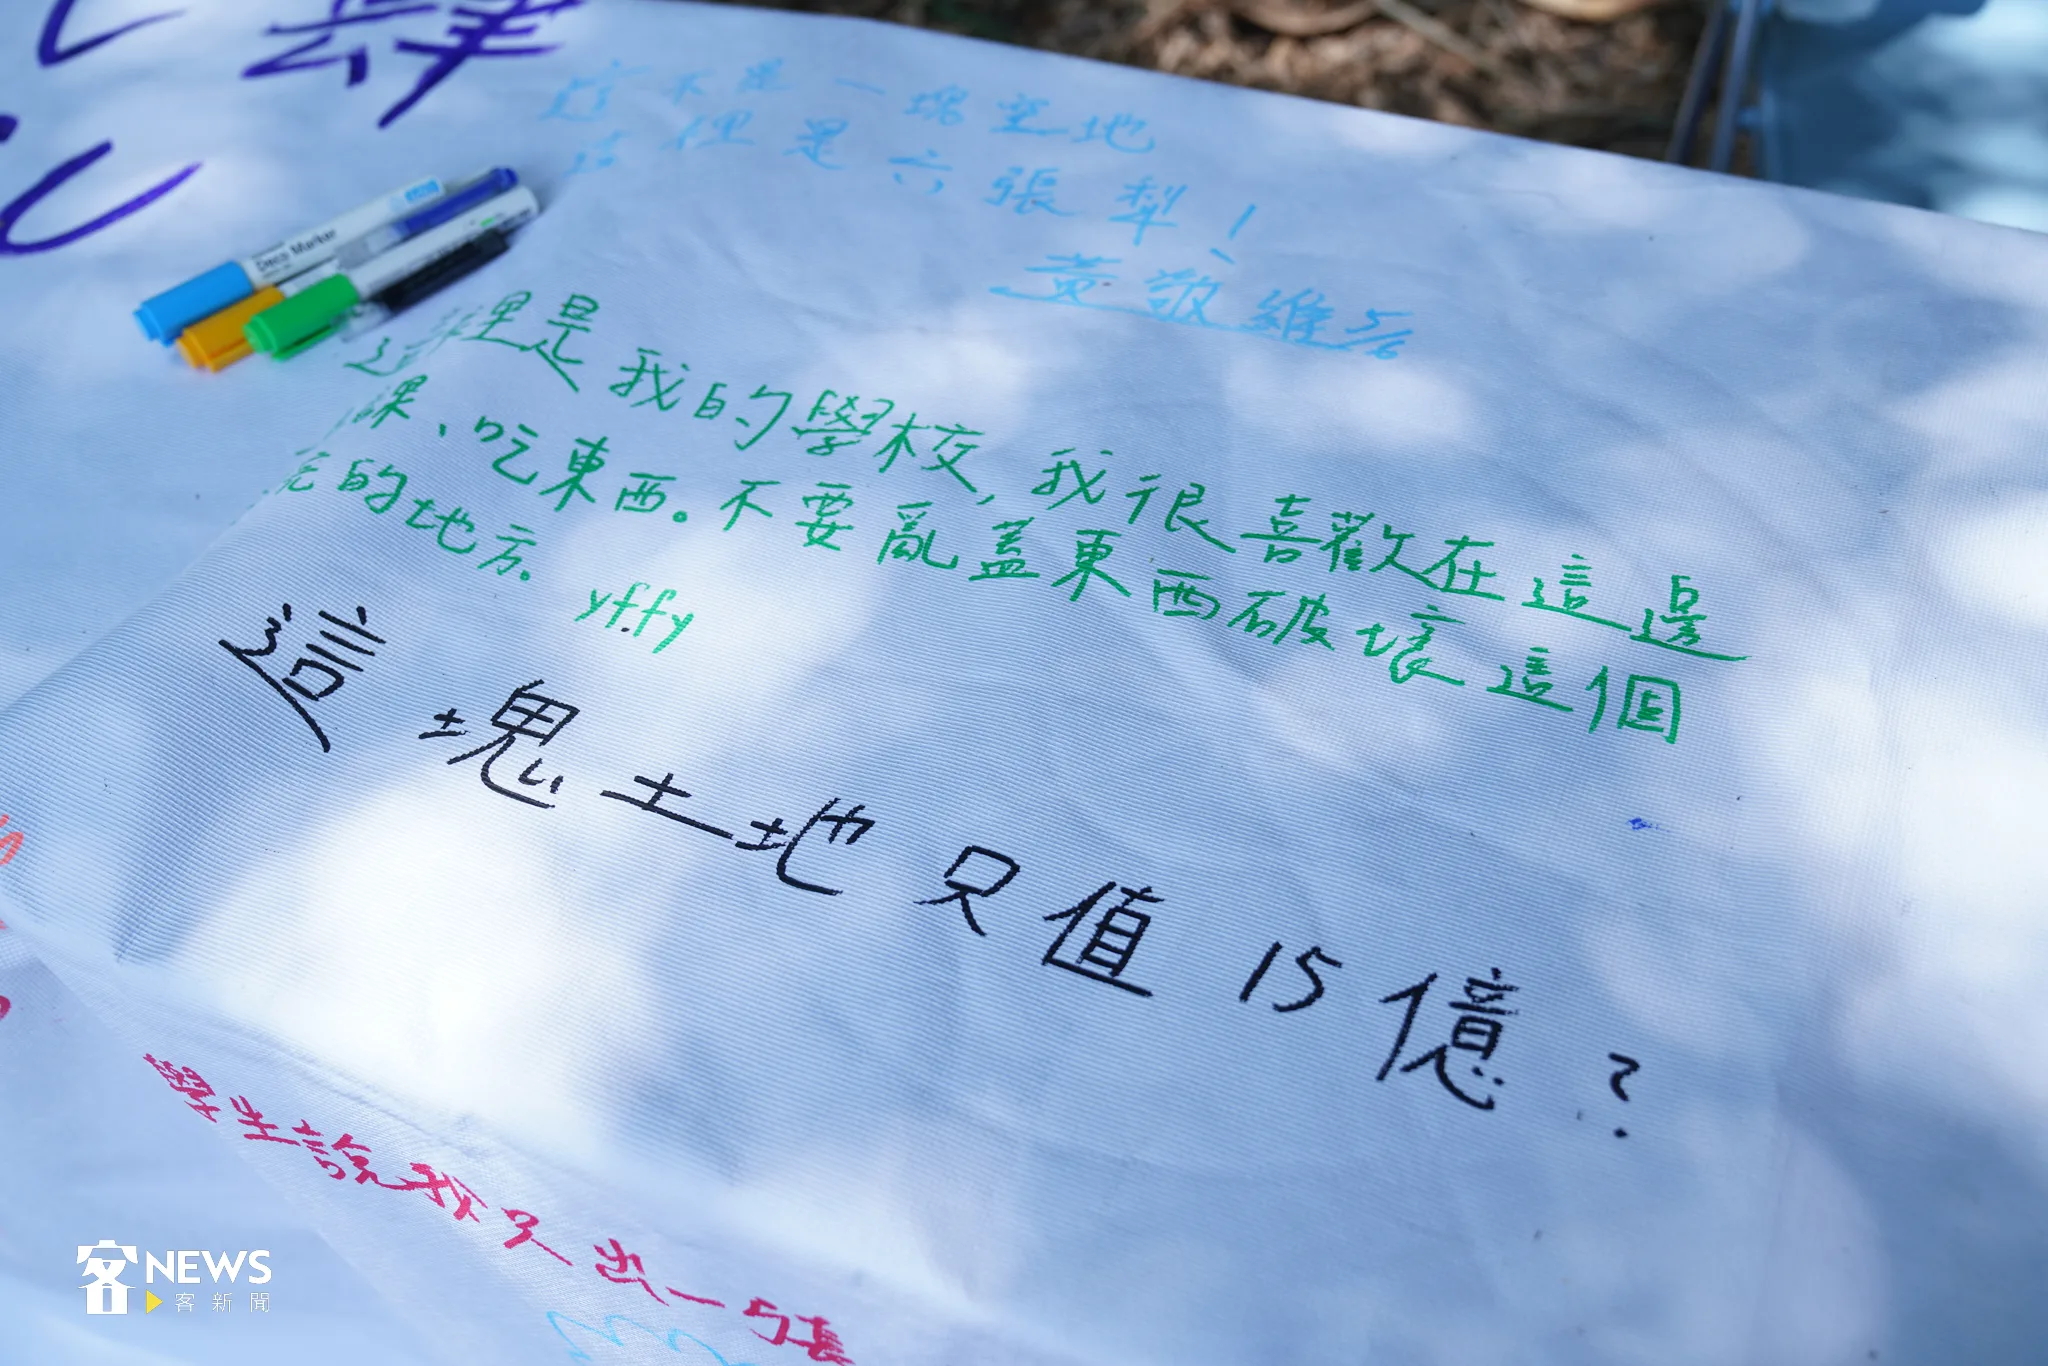 肆
這不是一塊空地
這裡是六張犁！
黃敬維5/6
這裡是我的學校，我很喜歡在這邊
課、吃東西。不要亂蓋東西破壞這個
的地方。 yf.fy
這塊土地只值15億？
學生說我了出一張
Deco Marker
客NEWS
客新聞